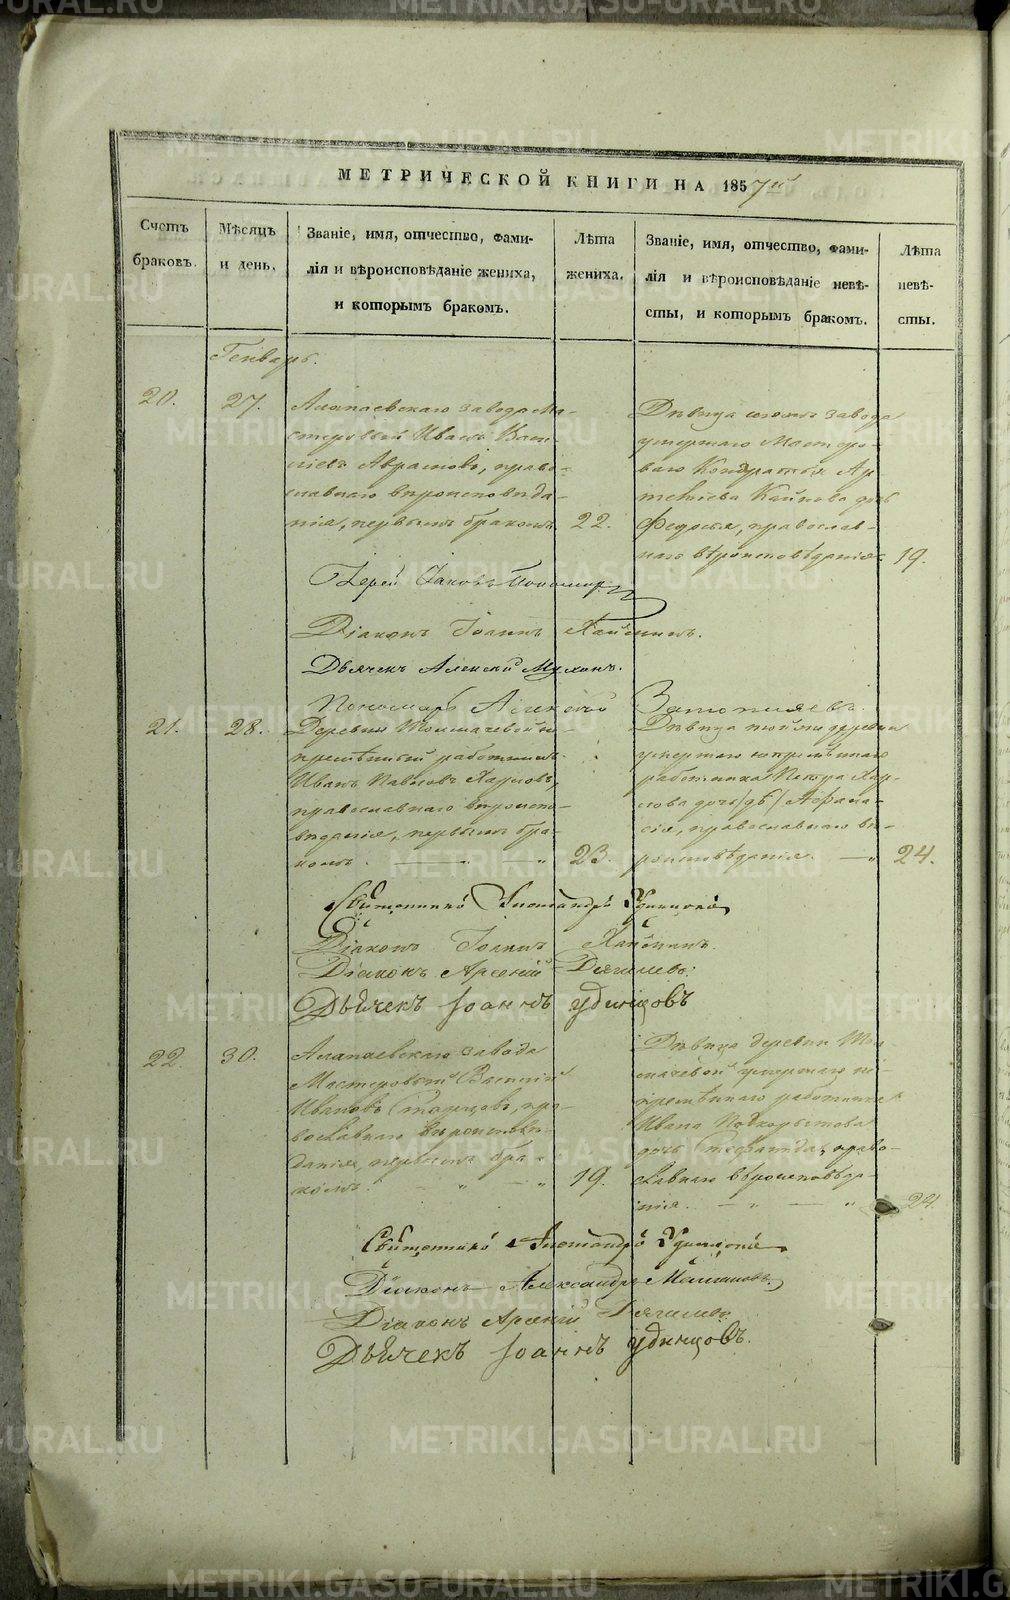 МЕТРИЧЕСКОЙ КНИГИ НА 1857й
Счетъ браковъ.
Мѣсяцъ и день.
Званіе, имя, отчество, фами-
лія и вѣроисповѣданіе жениха,
и которымъ бракомъ.
Лѣта жениха.
Званіе, имя, отчество, фами-
лія и вѣроисповѣданіе невѣ-
сты, и которымъ бракомъ.
Лѣта невѣ-
сты.
Генварь.
20.
27.
Алапаевскаго завода Ма-
стеровый Иванъ Васи-
право-
славнаго вѣроисповѣда-
нія, первымъ бракомъ
22.
Дѣвица завода
умершаго Мастеро-
ваго Кондратья Ар-
дочь
Федосья, православ-
наго вѣроисповѣданія
19.
Іерей Іаковъ
Діаконъ Іоаннъ
Дьячекъ Алексѣй
Пономарь Алексѣй
21.
28.
Деревни Толмачевой не-
премѣнный работникъ
Иванъ Павловъ Харловъ,
православнаго вѣроиспо-
вѣданія, первымъ бра-
комъ. — „ „
23.
Дѣвица той же деревни
умершаго непремѣннаго
работника Петра Хар-
лова дочь Афана-
сія, православнаго вѣ-
роисповѣданія. — „
24.
Священникъ Александръ Удинцовъ
Діаконъ Іоаннъ
Діаконъ Арсеній Дягилевъ.
Дьячекъ Іоаннъ Удинцовъ
22.
30.
Алапаевскаго завода
Мастеровый Василій
Ивановъ Старцовъ, пра-
вославнаго вѣроисповѣ-
данія, первымъ бра-
комъ. — „ — „
19.
Дѣвица деревни Тол-
мачевой умершаго не-
премѣннаго работника
Ивана Подкорытова
дочь право-
славнаго вѣроисповѣда-
нія. — „ — „
24
Священникъ Александръ Удинцовъ
Діаконъ Александръ
Діаконъ Арсеній Дягилевъ
Дьячекъ Іоаннъ Удинцовъ.
METRIKI.GASO-URAL.RU